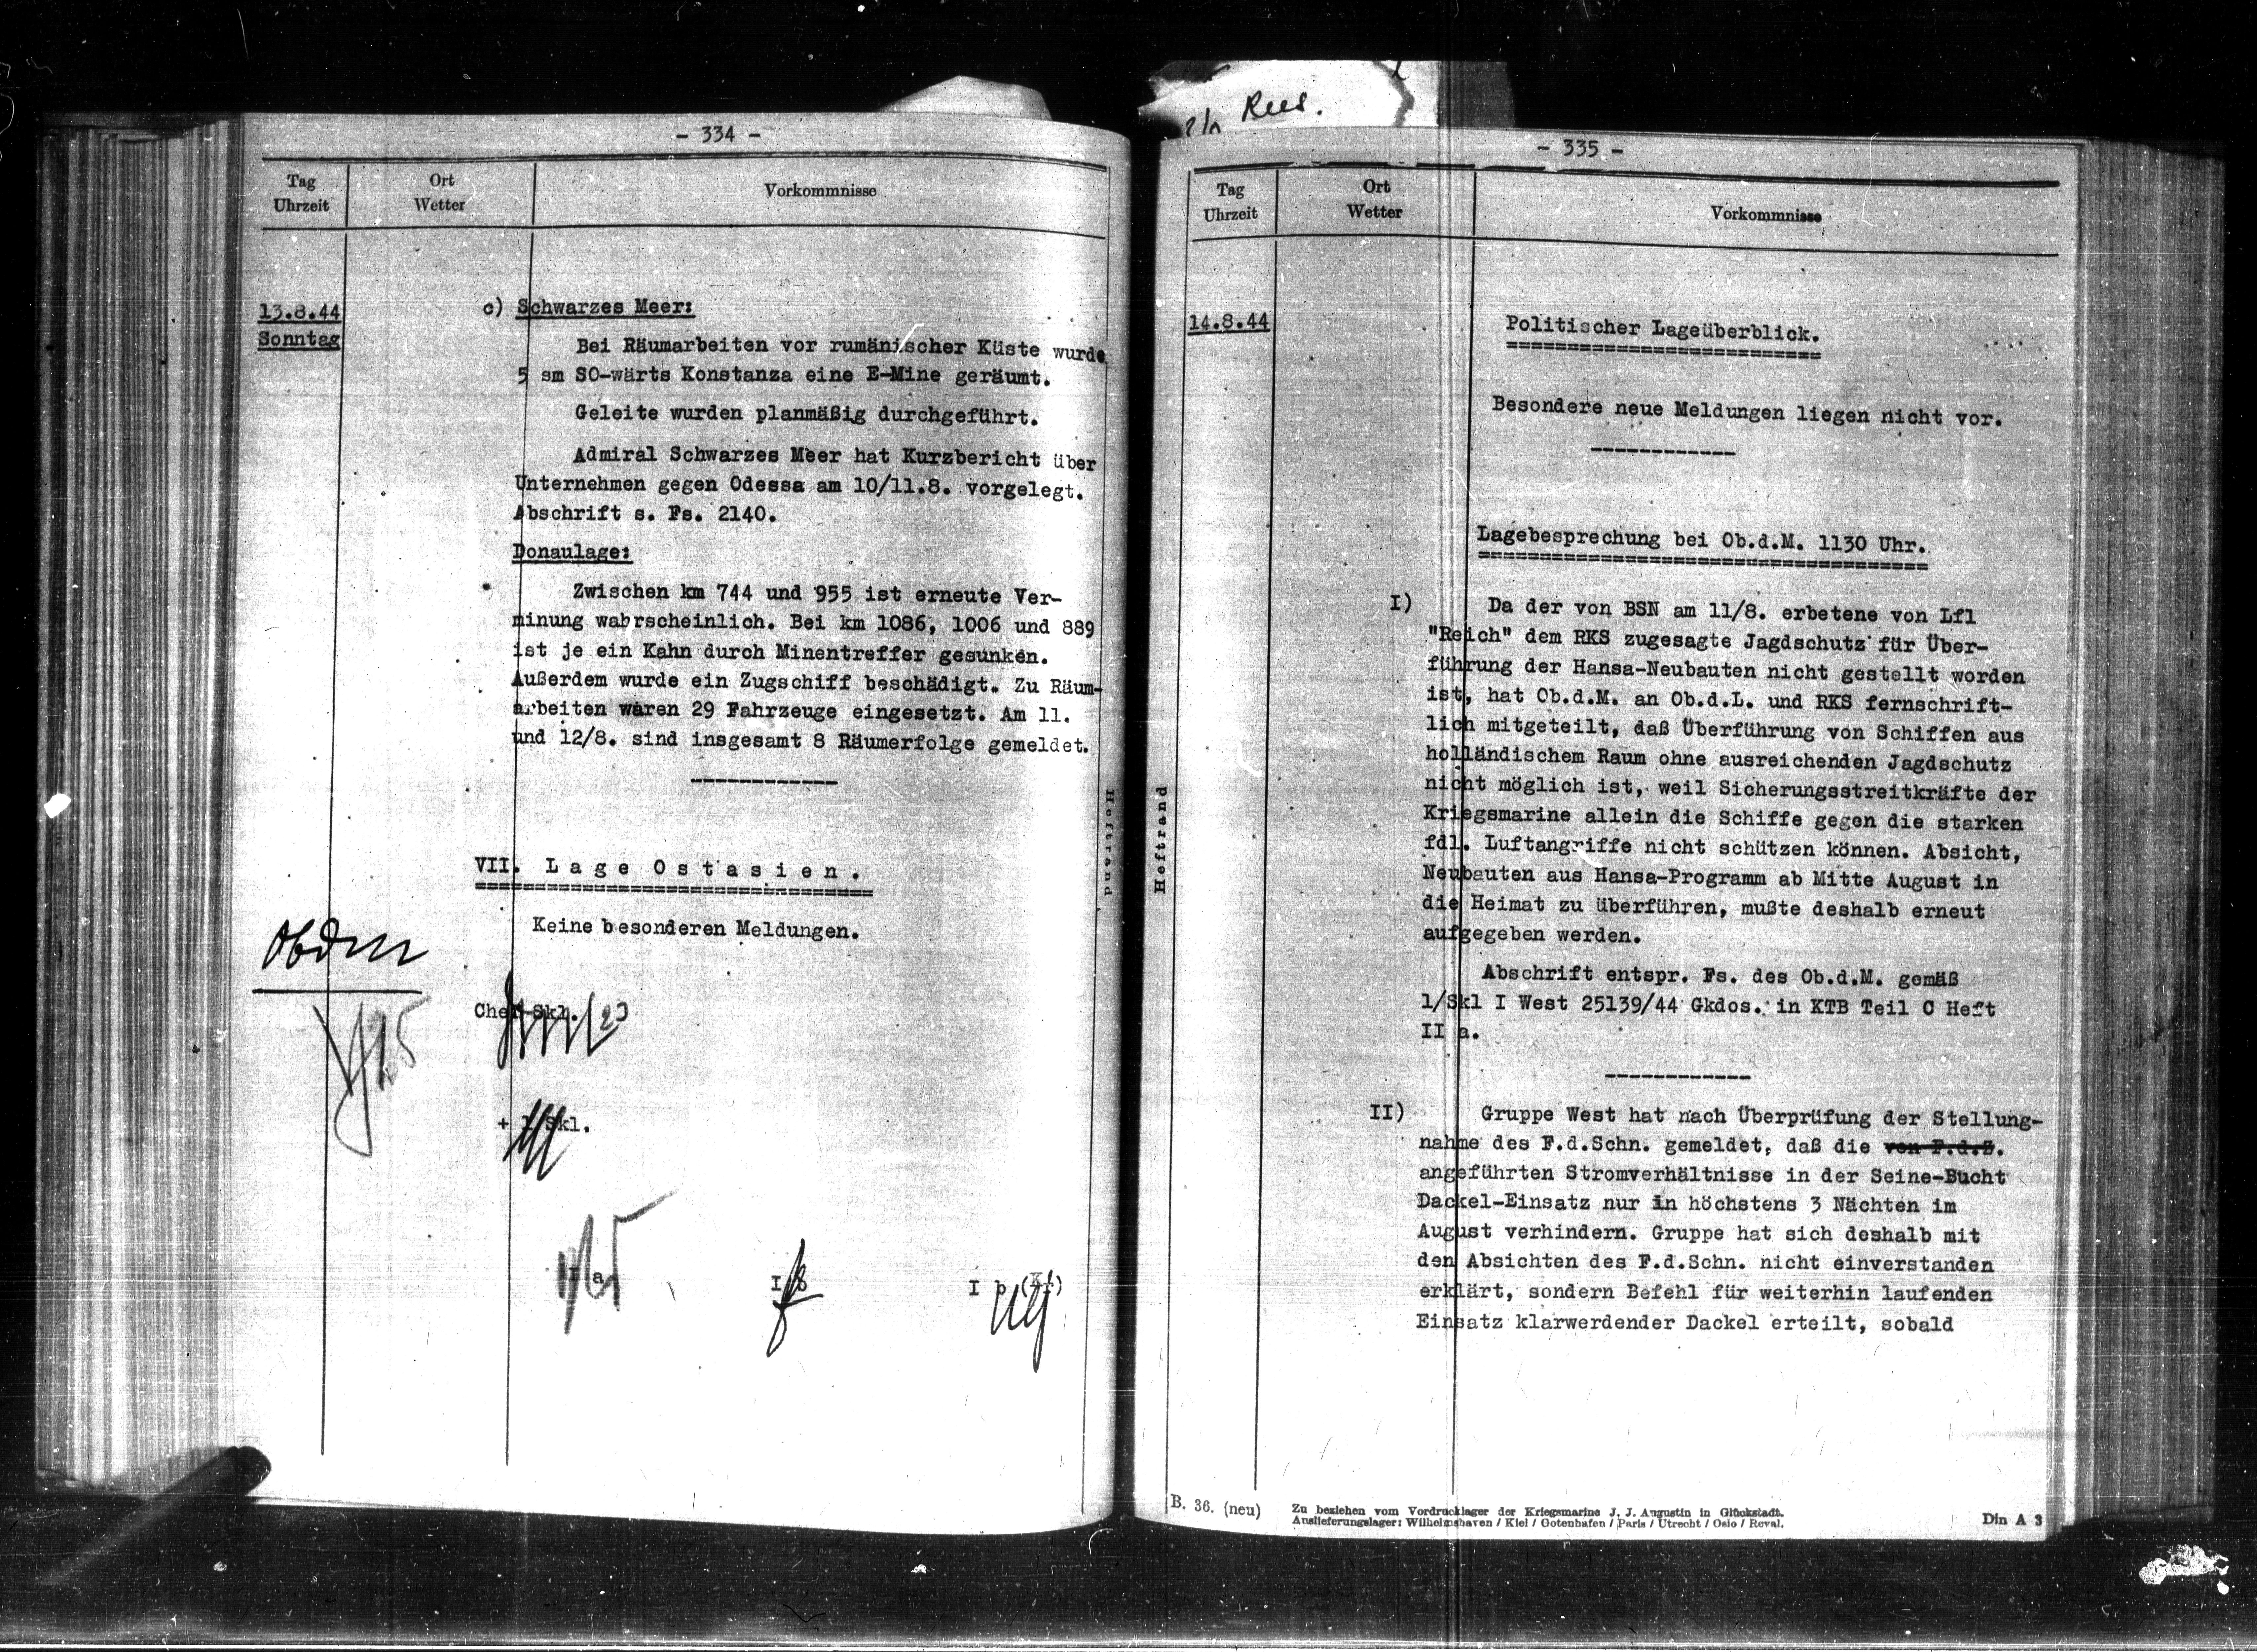 Rees.
- 334 -
Tag
Uhrzeit
Ort
Wetter
Vorkommnisse
13.8.44
Sonntag
c) Schwarzes Meer:
Bei Räumarbeiten vor rumänischer Küste wurde
5 sm SO-wärts Konstanza eine E-Mine geräumt.
Geleite wurden planmäßig durchgeführt.
Admiral Schwarzes Meer hat Kurzbericht über
Unternehmen gegen Odessa am 10/11.8. vorgelegt.
Abschrift s. Fs. 2140.
Donaulage:
Zwischen km 744 und 955 ist erneute Ver-
minung wahrscheinlich. Bei km 1086, 1006 und 889
ist je ein Kahn durch Minentreffer gesunken.
Außerdem wurde ein Zugschiff beschädigt. Zu Räum-
arbeiten waren 29 Fahrzeuge eingesetzt. Am 11.
und 12/8. sind insgesamt 8 Räumerfolge gemeldet.
VII. Lage Ostasien.
Keine besonderen Meldungen.
ObdM
Chef Skl.
+ 1/Skl.
I a
I b
I b (Kt)
Heftrand
Heftrand
- 335 -
Tag
Uhrzeit
Ort
Wetter
Vorkommnisse
14.8.44
Politischer Lageüberblick.
Besondere neue Meldungen liegen nicht vor.
Lagebesprechung bei Ob.d.M. 1130 Uhr.
I) Da der von BSN am 11/8. erbetene von Lfl
"Reich" dem RKS zugesagte Jagdschutz für Über-
führung der Hansa-Neubauten nicht gestellt worden
ist, hat Ob.d.M. an Ob.d.L. und RKS fernschrift-
lich mitgeteilt, daß Überführung von Schiffen aus
holländischem Raum ohne ausreichenden Jagdschutz
nicht möglich ist, weil Sicherungsstreitkräfte der
Kriegsmarine allein die Schiffe gegen die starken
fdl. Luftangriffe nicht schützen können. Absicht,
Neubauten aus Hansa-Programm ab Mitte August in
die Heimat zu überführen, mußte deshalb erneut
aufgegeben werden.
Abschrift entspr. Fs. des Ob.d.M. gemäß
1/Skl I West 25139/44 Gkdos. in KTB Teil C Heft
II a.
II) Gruppe West hat nach Überprüfung der Stellung-
nahme des F.d.Schn. gemeldet, daß die von F.d.S.
angeführten Stromverhältnisse in der Seine-Bucht
Dackel-Einsatz nur in höchstens 3 Nächten im
August verhindern. Gruppe hat sich deshalb mit
den Absichten des F.d.Schn. nicht einverstanden
erklärt, sondern Befehl für weiterhin laufenden
Einsatz klarwerdender Dackel erteilt, sobald
B. 36. (neu)
Zu beziehen vom Vordrucklager der Kriegsmarine J. J. Augustin in Glückstadt.
Auslieferungslager: Wilhelmshaven / Kiel / Gotenhafen / Paris / Utrecht / Oslo / Reval.
Din A 3